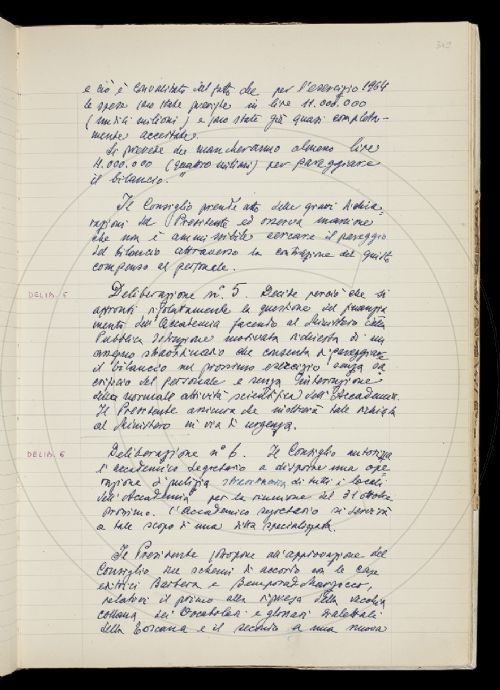 342
e ciò è convalidato dal fatto che per l'esercizio 1964
le spese sono state previste in lire 11.000.000
(undici milioni) e sono state già quasi completa-
mente accertate.
Si prevede che mancheranno almeno lire
4.000.000 (quattro milioni) per pareggiare
il bilancio."
Il Consiglio prende atto delle gravi dichia-
razioni del Presidente ed osserva unanime
che non è ammissibile cercare il pareggio
del bilancio attraverso la contrazione del giusto
compenso al personale.
DELIB. 5
Deliberazione n° 5. Decide perciò che si
affronti risolutamente la questione del finanzia
mento dell'Accademia facendo al Ministero della
Pubblica Istruzione motivata richiesta di un
assegno straordinario che consenta di pareggiare
il bilancio nel prossimo esercizio senza sa
crificio del personale e senza interruzione
della normale attività scientifica dell'Accademia.
Il Presidente assicura che inoltrerà tale richiesta
al Ministero in via di urgenza.
DELIB. 6
Deliberazione n° 6. Il Consiglio autorizza
l'accademico segretario a disporre una ope
razione di pulizia straordinaria di tutti i locali
dell'Accademia per la riunione del 31 ottobre
prossimo. L'accademico segretario si servirà
a tale scopo di una ditta specializzata.
Il Presidente propone all'approvazione del
Consiglio due schemi di accordo con le case
editrici Barbera e Bemporad Marzocco,
relativi il primo alla ripresa della vecchia
collana dei Vocabolari e glossari dialettali
della Toscana e il secondo a una nuova